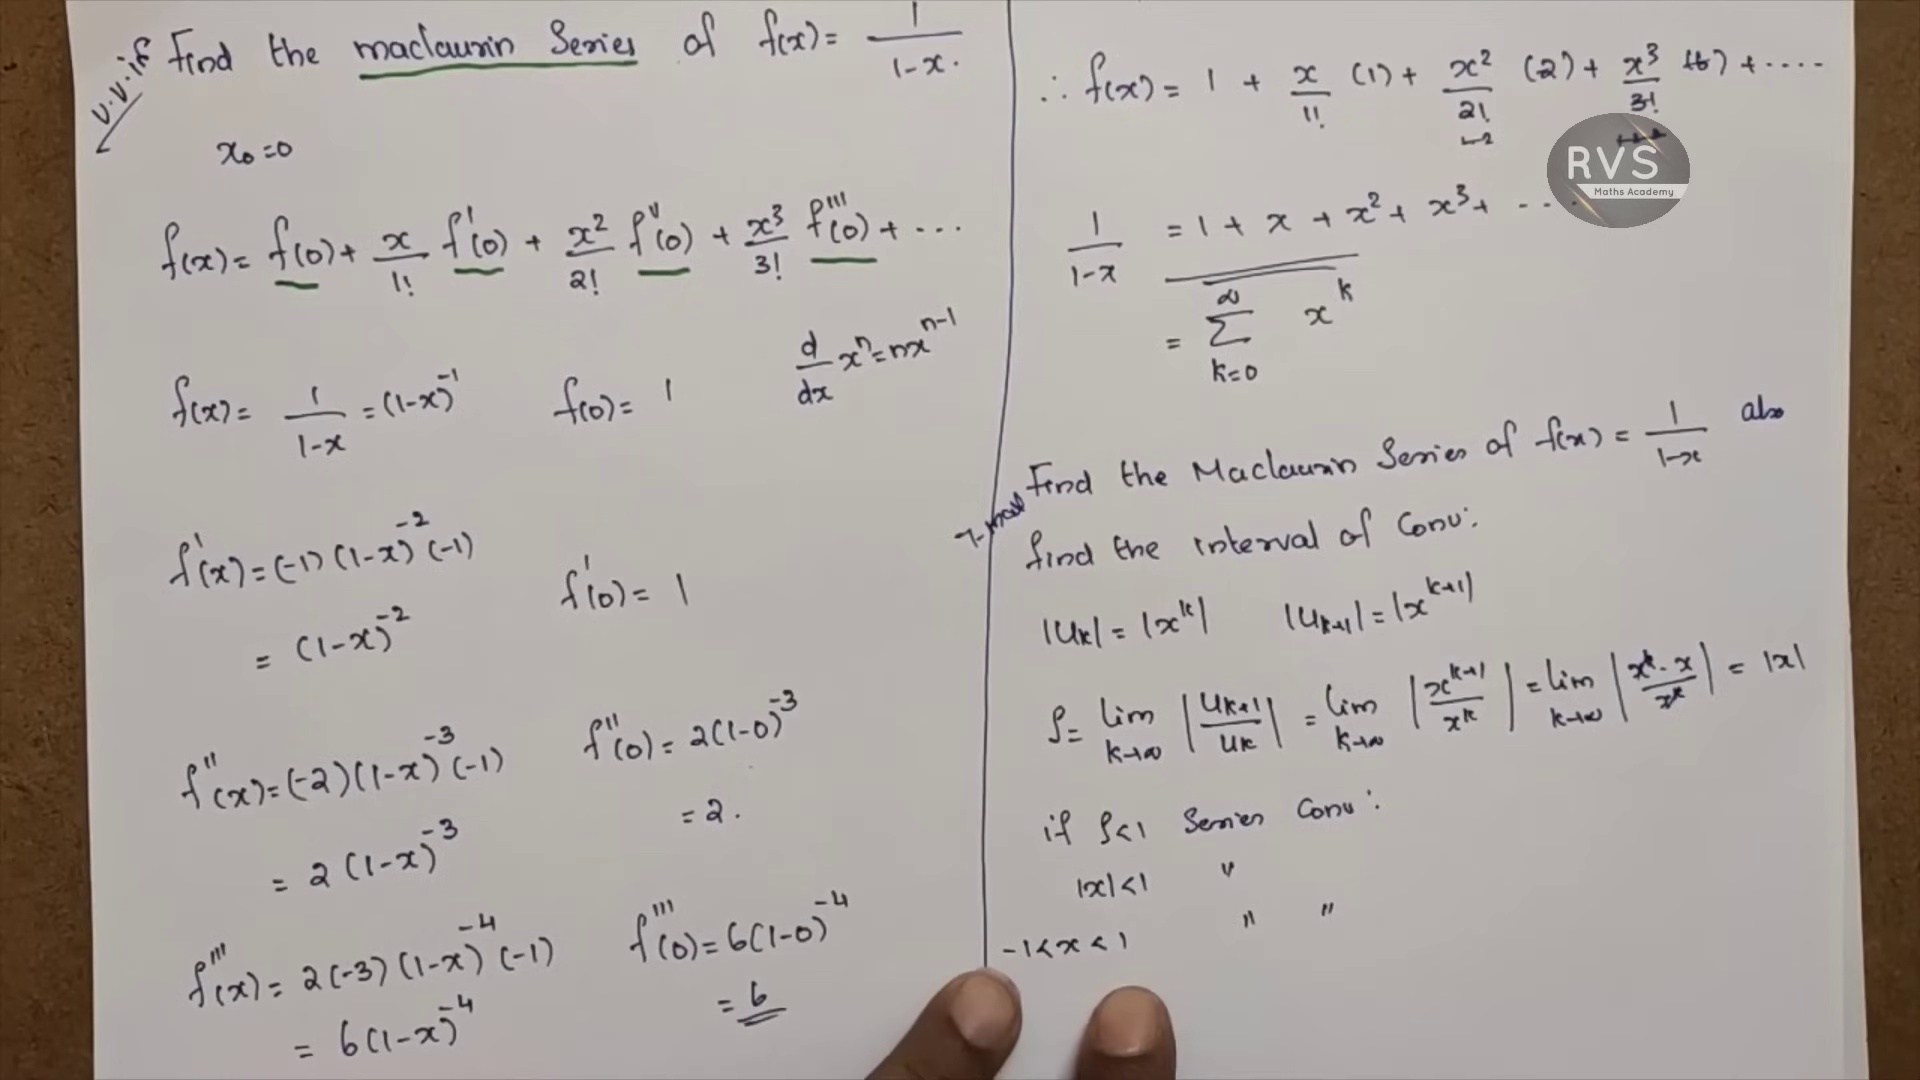 v.v.if Find the maclaurin Series of f(x) = 1/(1-x).
x₀=0
f(x) = f(0) + x/1! f'(0) + x²/2! f''(0) + x³/3! f'''(0) + ...
d/dx xⁿ = nxⁿ⁻¹
f(x) = 1/(1-x) = (1-x)⁻¹ f(0) = 1
f'(x) = (-1)(1-x)⁻²(-1) f'(0) = 1
= (1-x)⁻²
f''(x) = (-2)(1-x)⁻³(-1) f''(0) = 2(1-0)⁻³
= 2(1-x)⁻³ = 2.
f'''(x) = 2(-3)(1-x)⁻⁴(-1) f'''(0) = 6(1-0)⁻⁴
= 6(1-x)⁻⁴ = 6
∴ f(x) = 1 + x/1! (1) + x²/2! (2) + x³/3! (6) + ....
RVS
Maths Academy
1/(1-x) = 1 + x + x² + x³ + ...
= ∑ₖ₌₀^∞ xᵏ
Find the Maclaurin Series of f(x) = 1/(1-x) also
find the interval of Conv:
|Uₖ| = |xᵏ| |Uₖ₊₁| = |xᵏ⁺¹|
ρ = lim k→∞ |Uₖ₊₁/Uₖ| = lim k→∞ |xᵏ⁺¹/xᵏ| = lim k→∞ |xᵏ·x/xᵏ| = |x|
if ρ<1 Series Conv:
|x|<1 "
-1<x<1 " "